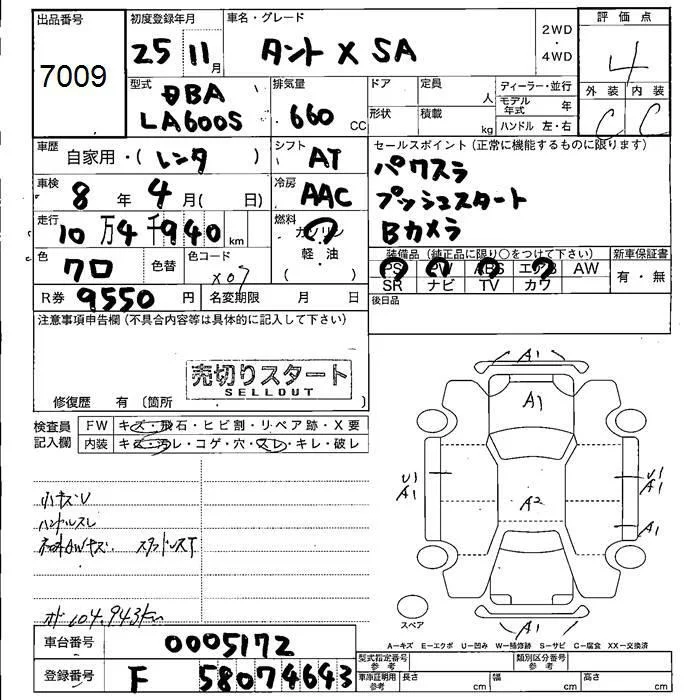 出品番号 7009
初度登録年月 25 11月
車名・グレード タント X SA
2WD ・ 4WD
評価点 4
外装 C 内装 C
型式 DBA LA600S
排気量 660 CC
ドア 定員 人
形状 積載 kg
ディーラー・並行
モデル年式 年
ハンドル 左・右
車歴 自家用・(レンタ)
シフト AT
セールスポイント(正常に機能するものに限ります)
パワスラ
プッシュスタート
Bカメラ
車検 8年 4月( 日)
冷房 AAC
走行 10万4千940 km
燃料 ガソリン 軽・油 ( )
色 クロ 色替
色コード X07
装備品(純正品に限り○をつけて下さい)
PS PW ABS エアB AW
SR ナビ TV カワ
新車保証書 有・無
R券 9550円
名変期限 月 日
後日品
注意事項申告欄(不具合内容等は具体的に記入して下さい)
売切りスタート
SELLOUT
修復歴 有(箇所 )
検査員記入欄
FW キズ・飛石・ヒビ割・リペア跡・X要
内装 キズ・汚レ・コゲ・穴・スレ・キレ・破レ
小キズU
ハンドルスレ
AWキズ スタッドレスT
104,943km
A1
A1
U1 A1
A2
U1 A1
A1
A1
スペア
A-キズ E-エクボ U-凹み W-補修跡 S-サビ C-腐食 XX-交換済
車台番号 0005172
登録番号 F 58074643
型式指定番号 参考
類別区分番号 参考
車庫証明用 参考 長さ cm 幅 cm 高さ cm